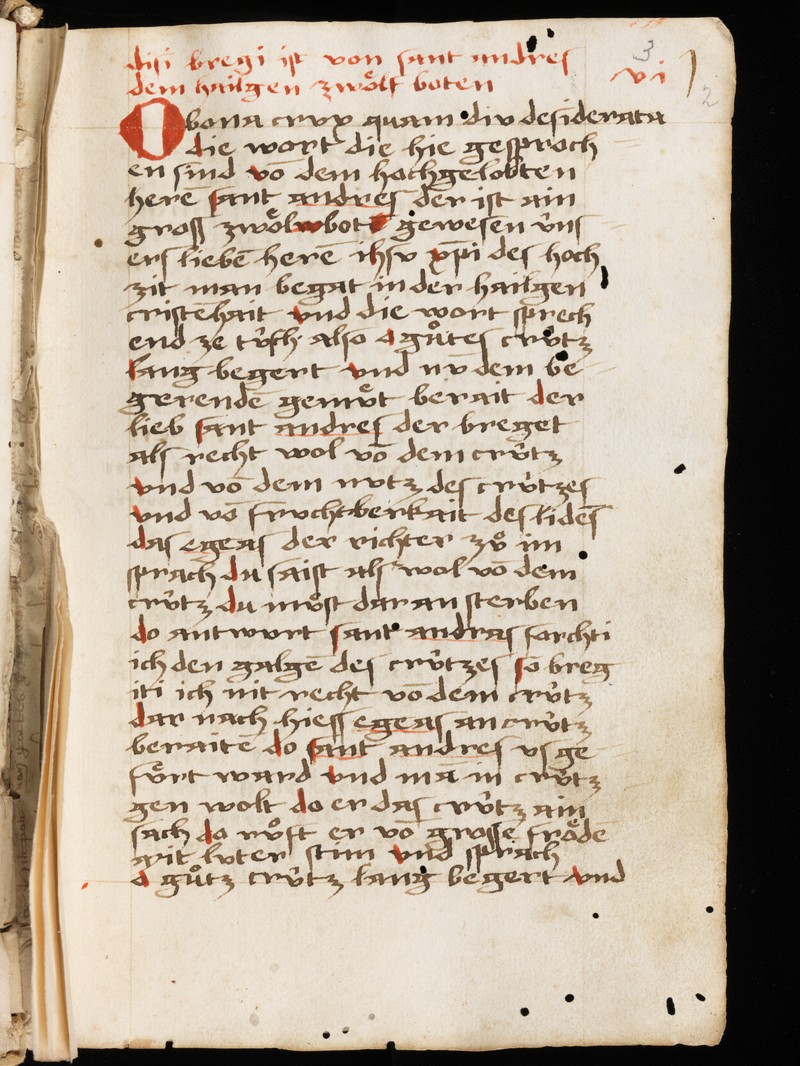 disi bregi ist von sant andres
dem hailgen zwoͤlf boten
vi
3
2
O bona crux quam diu desiderata
die wort die hie gesproch
en sind vō dem hochgelobten
herē sant andres der ist ain
gross zwoͤlwbotē gewesen vͦns
ers liebē herē ihsv xp̄i des hoch
zit man begat in der hailgen
cristēhait vnd die wort sprech
end ze tv̊sch also o guͦtes crv̊tz
lang begert vnd nv dem be
gerendē gemv̊t berait der
lieb sant andres der breget
als recht wol vō dem crv̊tz
vnd vō dem nvtz des crv̊tzes
vnd vō frvchtberkait des lidēs
das egeas der richter zv̊ im
sprach du saist als wol vō dem
crv̊tz du mv̊st dar an sterben
do antwurt sant andras forchti
ich den galgē des crv̊tzes so breg
iti ich nit recht vō dem crv̊tz
dar nach hiess egeas an crv̊tz
beraitē do sant andres vs ge
fv̊rt ward vnd mā in crv̊tz
gen wolt do er das crv̊tz ain
sach do rv̊ft er vō grosse froͤdē
mit luter stim vnd sprach
o guͦtz crv̊tz lang begert vnd